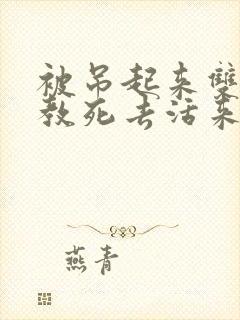 被吊起来雙
教死去活来
燕青